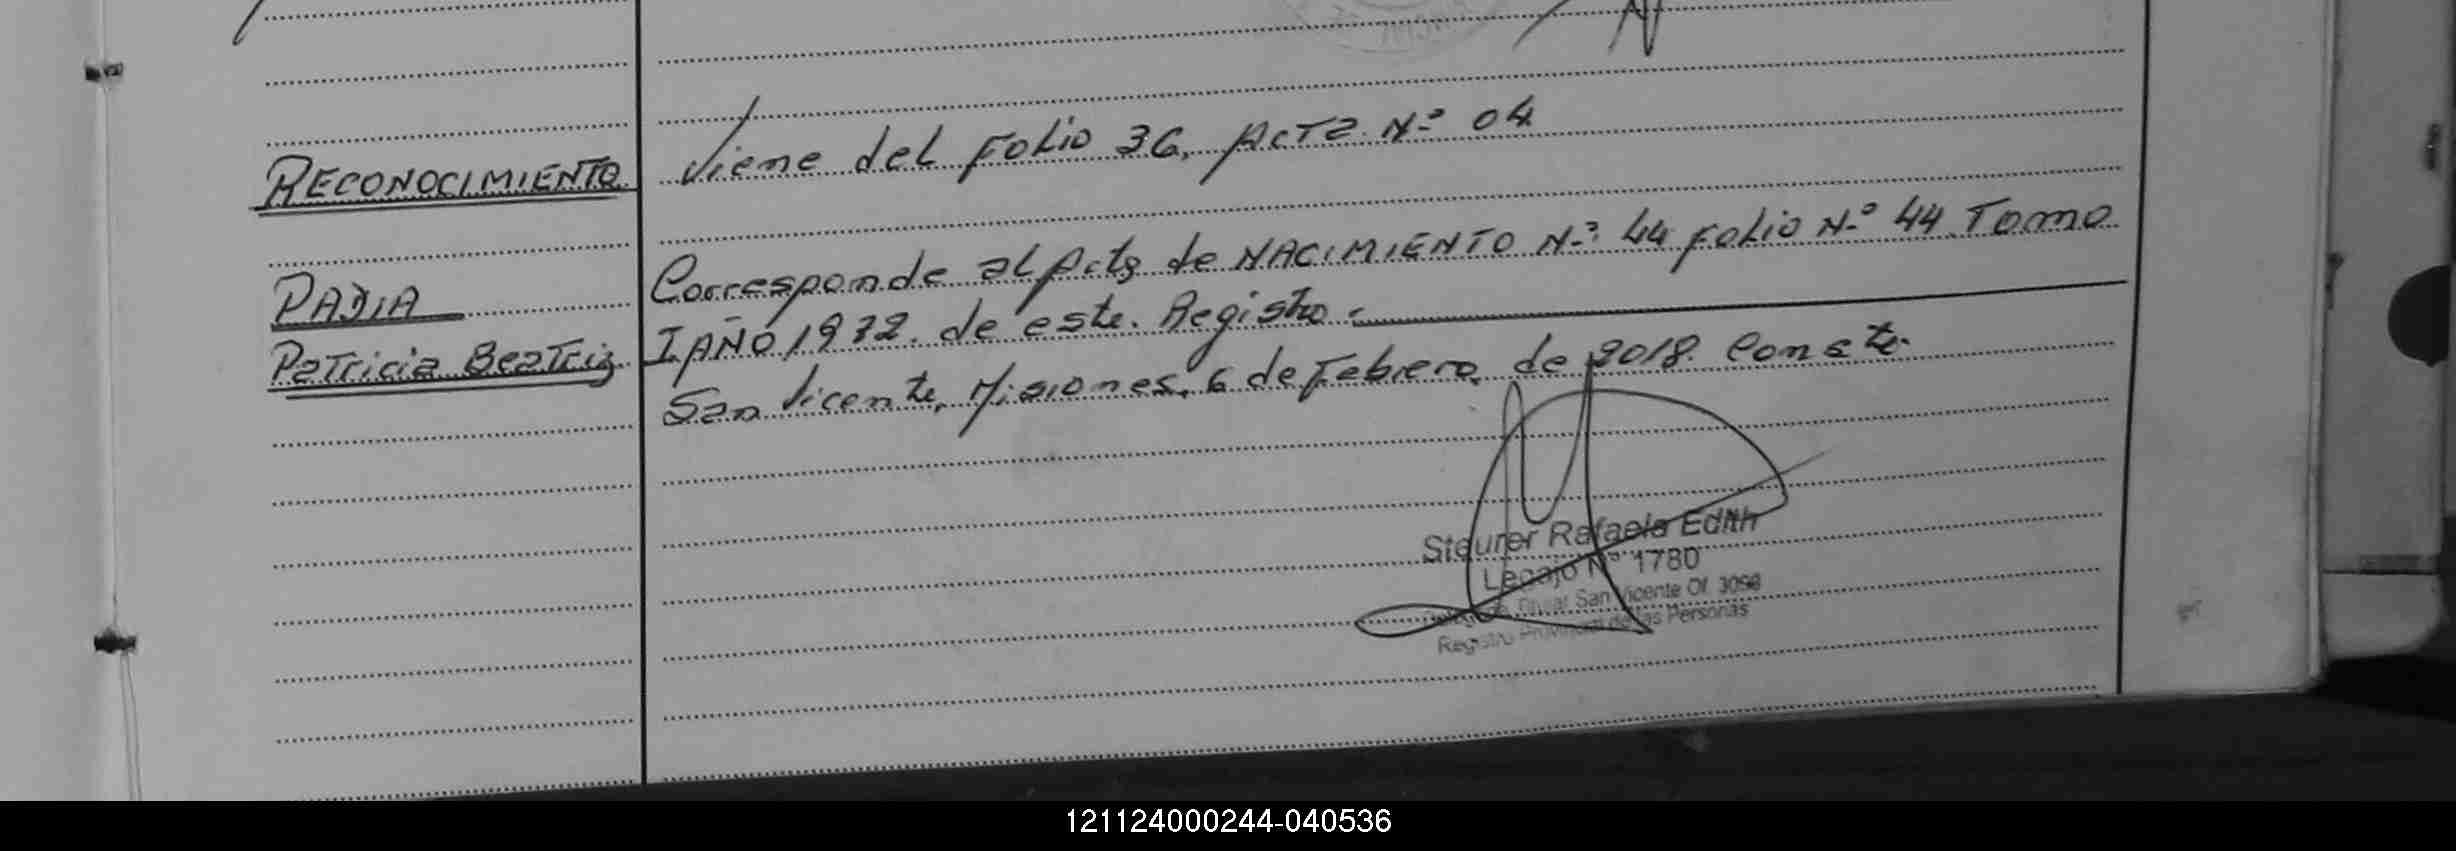 RECONOCIMIENTO
PADIA
Patricia Beatriz
Viene del Folio 36, Acta N° 04
Corresponde al Acta de NACIMIENTO N° 44 Folio N° 44 Tomo
I AÑO 1972. de este Registro.
San Vicente, Misiones, 6 de Febrero de 2018. Conste.
Steurer Rafaela Edith
Legajo N° 1780
Titular San Vicente Of. 3098
Registro Provincial de las Personas
121124000244-040536